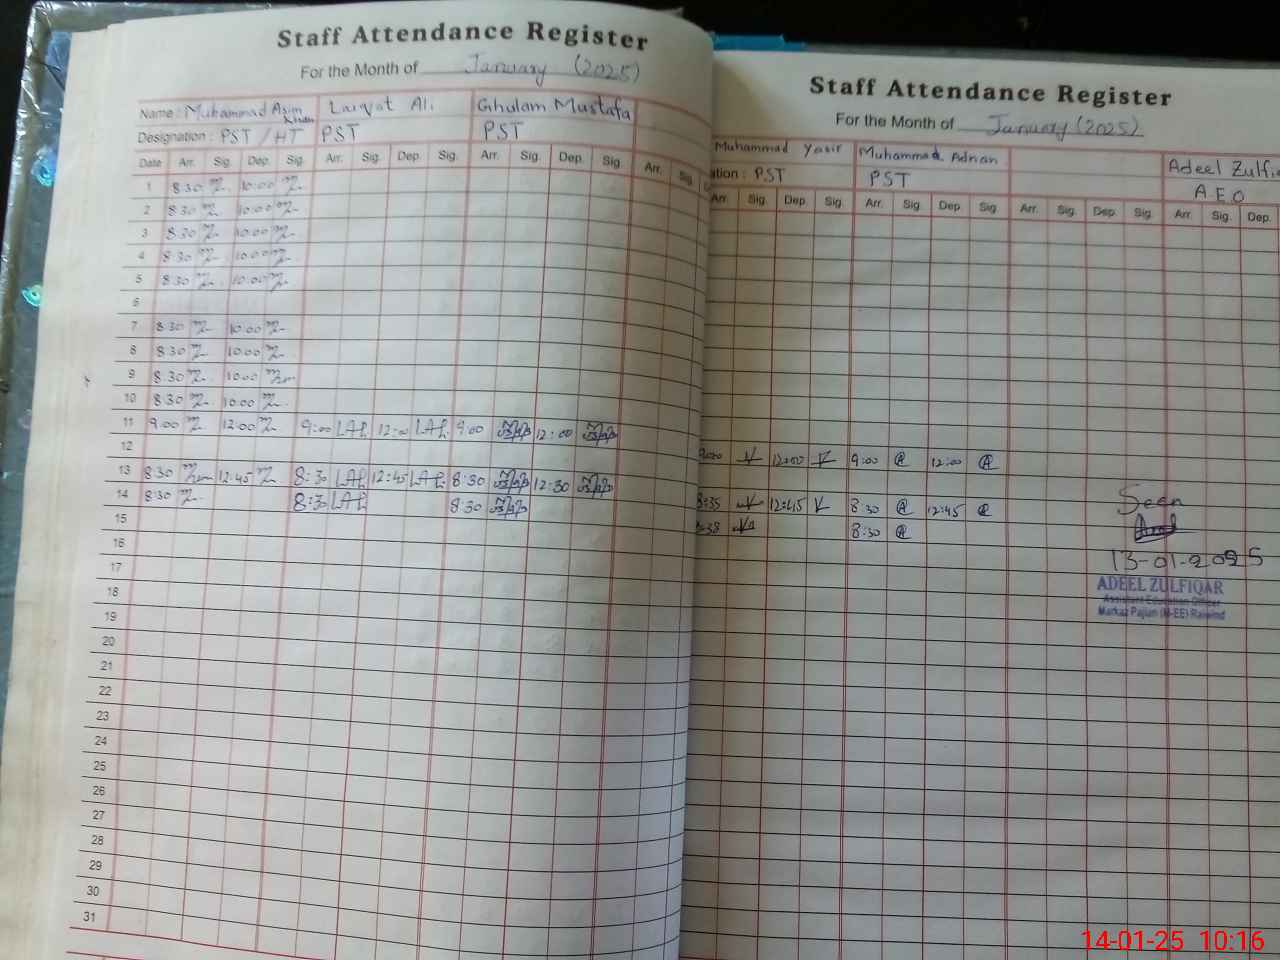 Staff Attendance Register
For the Month of January (2025)
Name : Muhammad Asim Khan Laiqat Ali Ghulam Mustafa
Designation : PST / HT PST PST
Date Arr. Sig. Dep. Sig. Arr. Sig. Dep. Sig. Arr. Sig. Dep. Sig. Arr. Sig.
1 8:30 10:00
2 8:30 10:00
3 8:30 10:00
4 8:30 10:00
5 8:30 10:00
6
7 8:30 10:00
8 8:30 10:00
9 8:30 10:00
10 8:30 10:00
11 9:00 12:00 9:00 LAL 12:00 LAL 9:00 12:00
12
13 8:30 12:45 8:30 LAL 12:45 LAL 8:30 12:30
14 8:30 8:30 LAL 8:30
15
16
17
18
19
20
21
22
23
24
25
26
27
28
29
30
31
Staff Attendance Register
For the Month of January (2025)
Muhammad Yasir Muhammad Adnan Adeel Zulfi
ation : PST PST A.E.O
Arr. Sig. Dep. Sig. Arr. Sig. Dep. Sig. Arr. Sig. Dep. Sig. Arr. Sig. Dep.
9:00 12:00 9:00 12:00
8:35 12:45 8:30 12:45
:38 8:30
Seen
13-01-2025
ADEEL ZULFIQAR
Assistant Education Officer
Markaz Pajian (M-EE) Raiwind
14-01-25 10:16